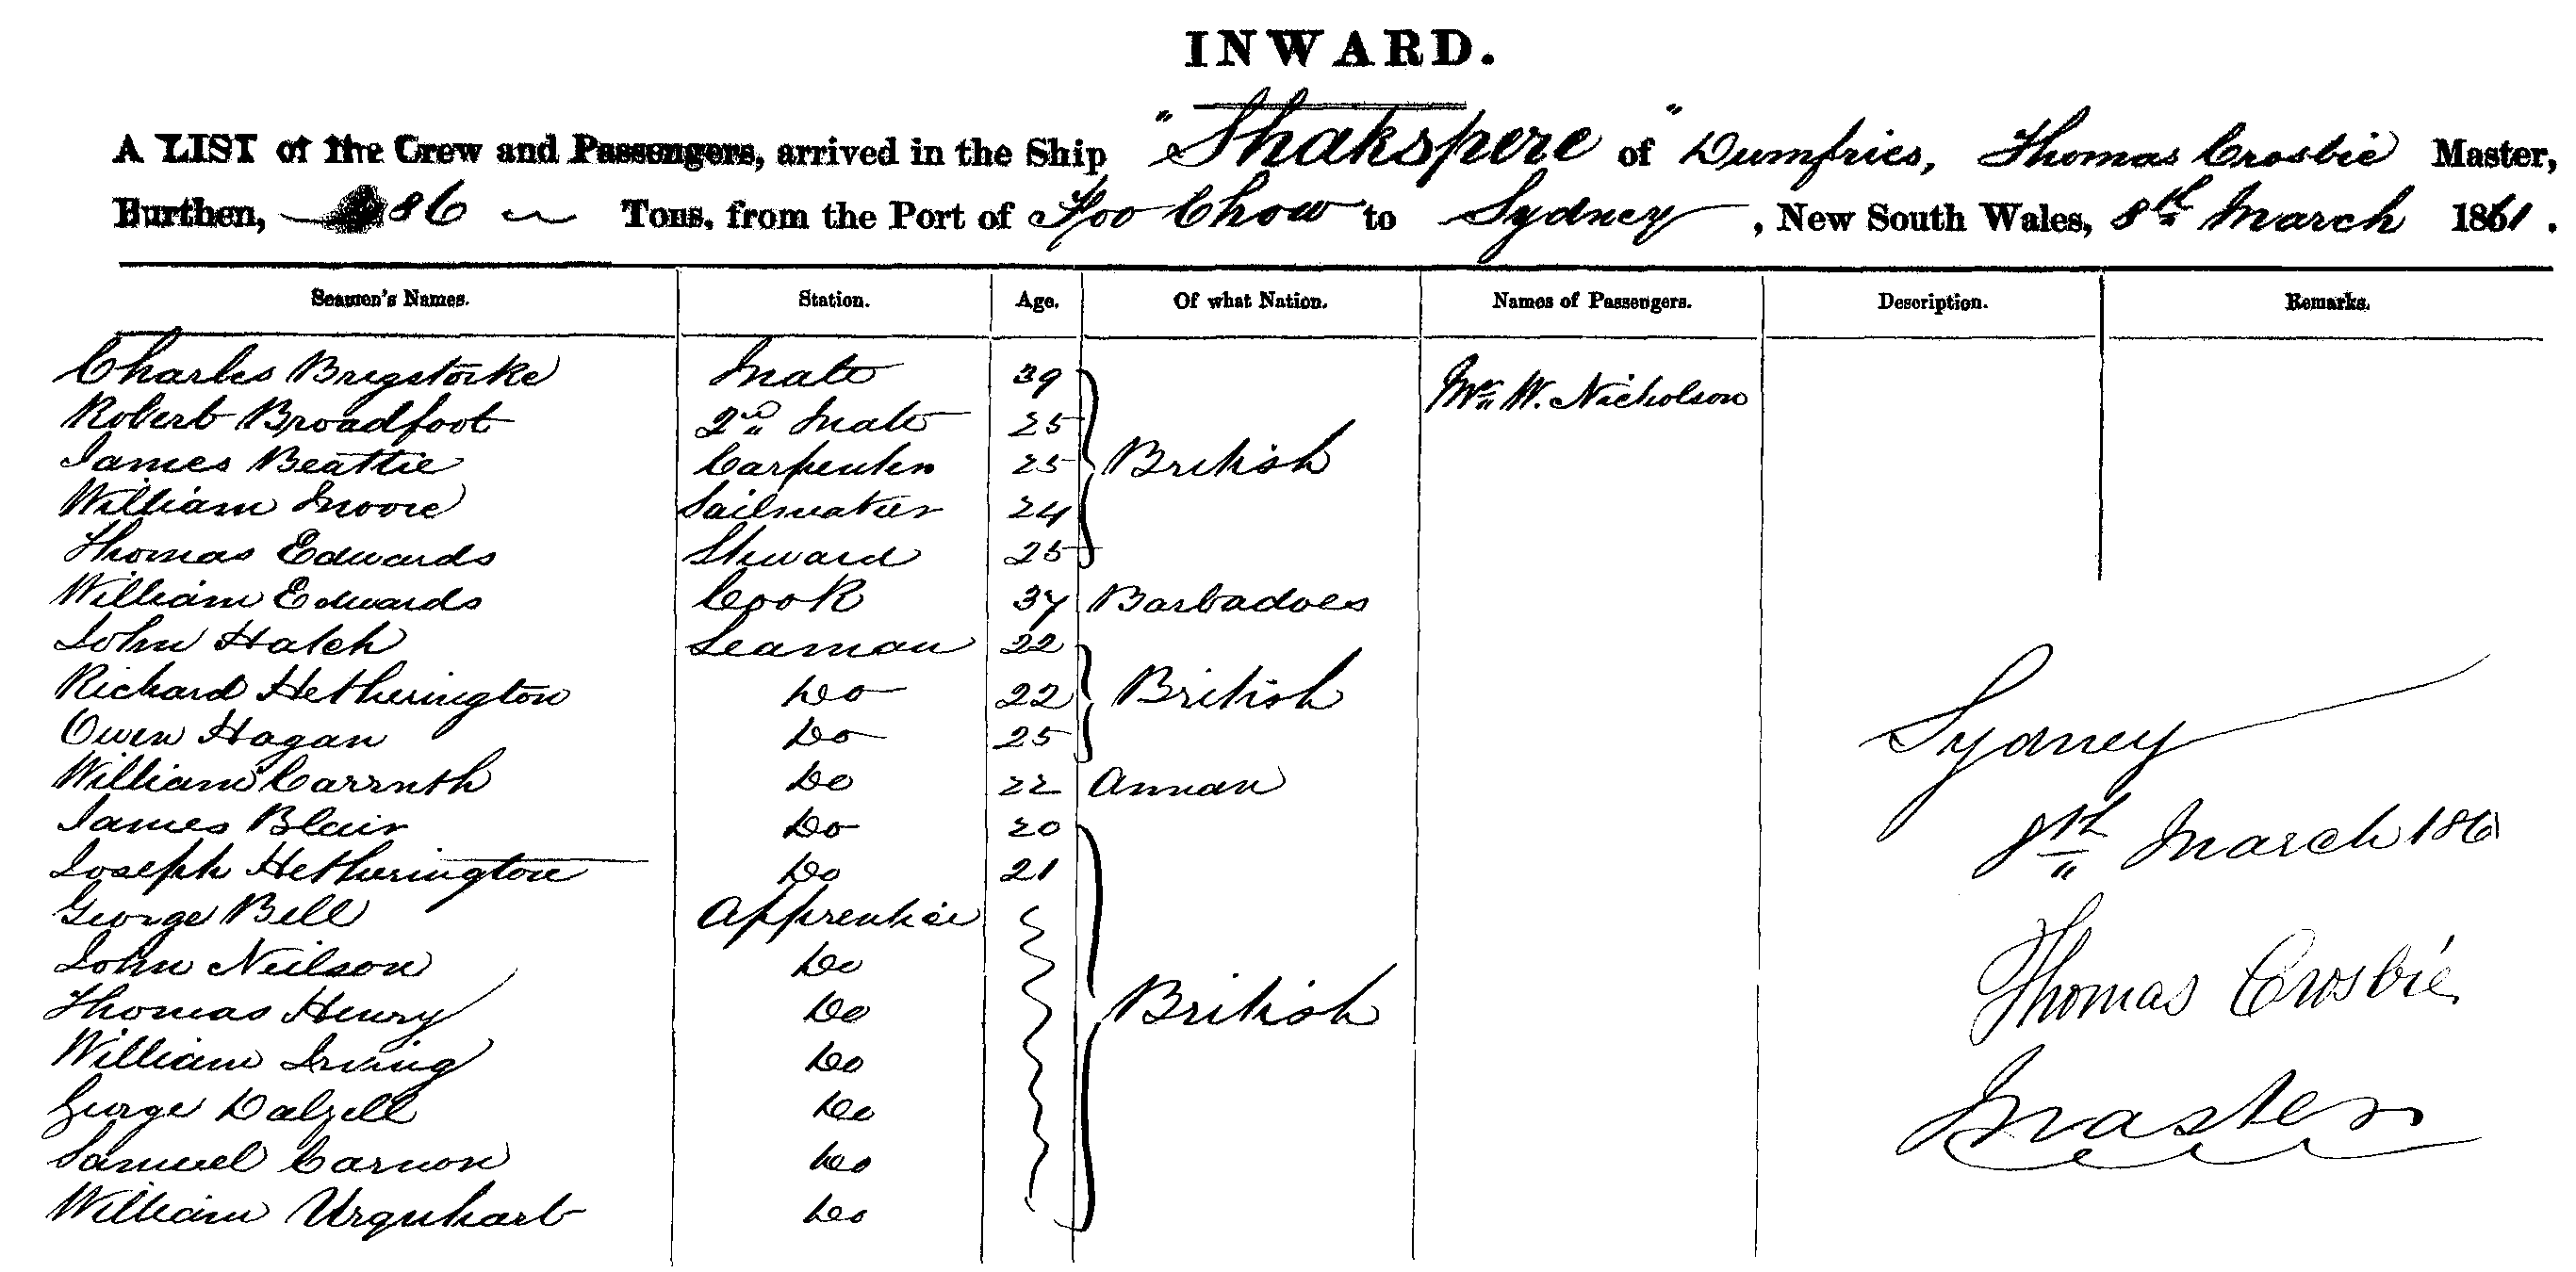 INWARD.
A LIST of the Crew and Passengers, arrived in the Ship "Shakspere" of Dumfries, Thomas Crosbie Master,
Burthen, 86 Tons, from the Port of Foo Chow to Sydney, New South Wales, 8th March 1861.
Seamen's Names. Station. Age. Of what Nation. Names of Passengers. Description. Remarks.
Charles Brigstocke Mate 39 Mr W. Nicholson
Robert Broadfoot 2nd Mate 25
James Beattie Carpenter 25 British
William Moore Sailmaker 24
Thomas Edwards Steward 25
William Edwards Cook 37 Barbadoes
John Hatch Seaman 22
Richard Hetherington Do 22 British
Owen Hagan Do 25
William Carruth Do 22 Annan
James Blair Do 20
Joseph Hetherington Do 21
George Bell Apprentice
John Neilson Do
Thomas Henry Do British
William Irving Do
George Dalzell Do
Samuel Carnon Do
William Urquhart Do
Sydney
8th March 1861
Thomas Crosbie
Master